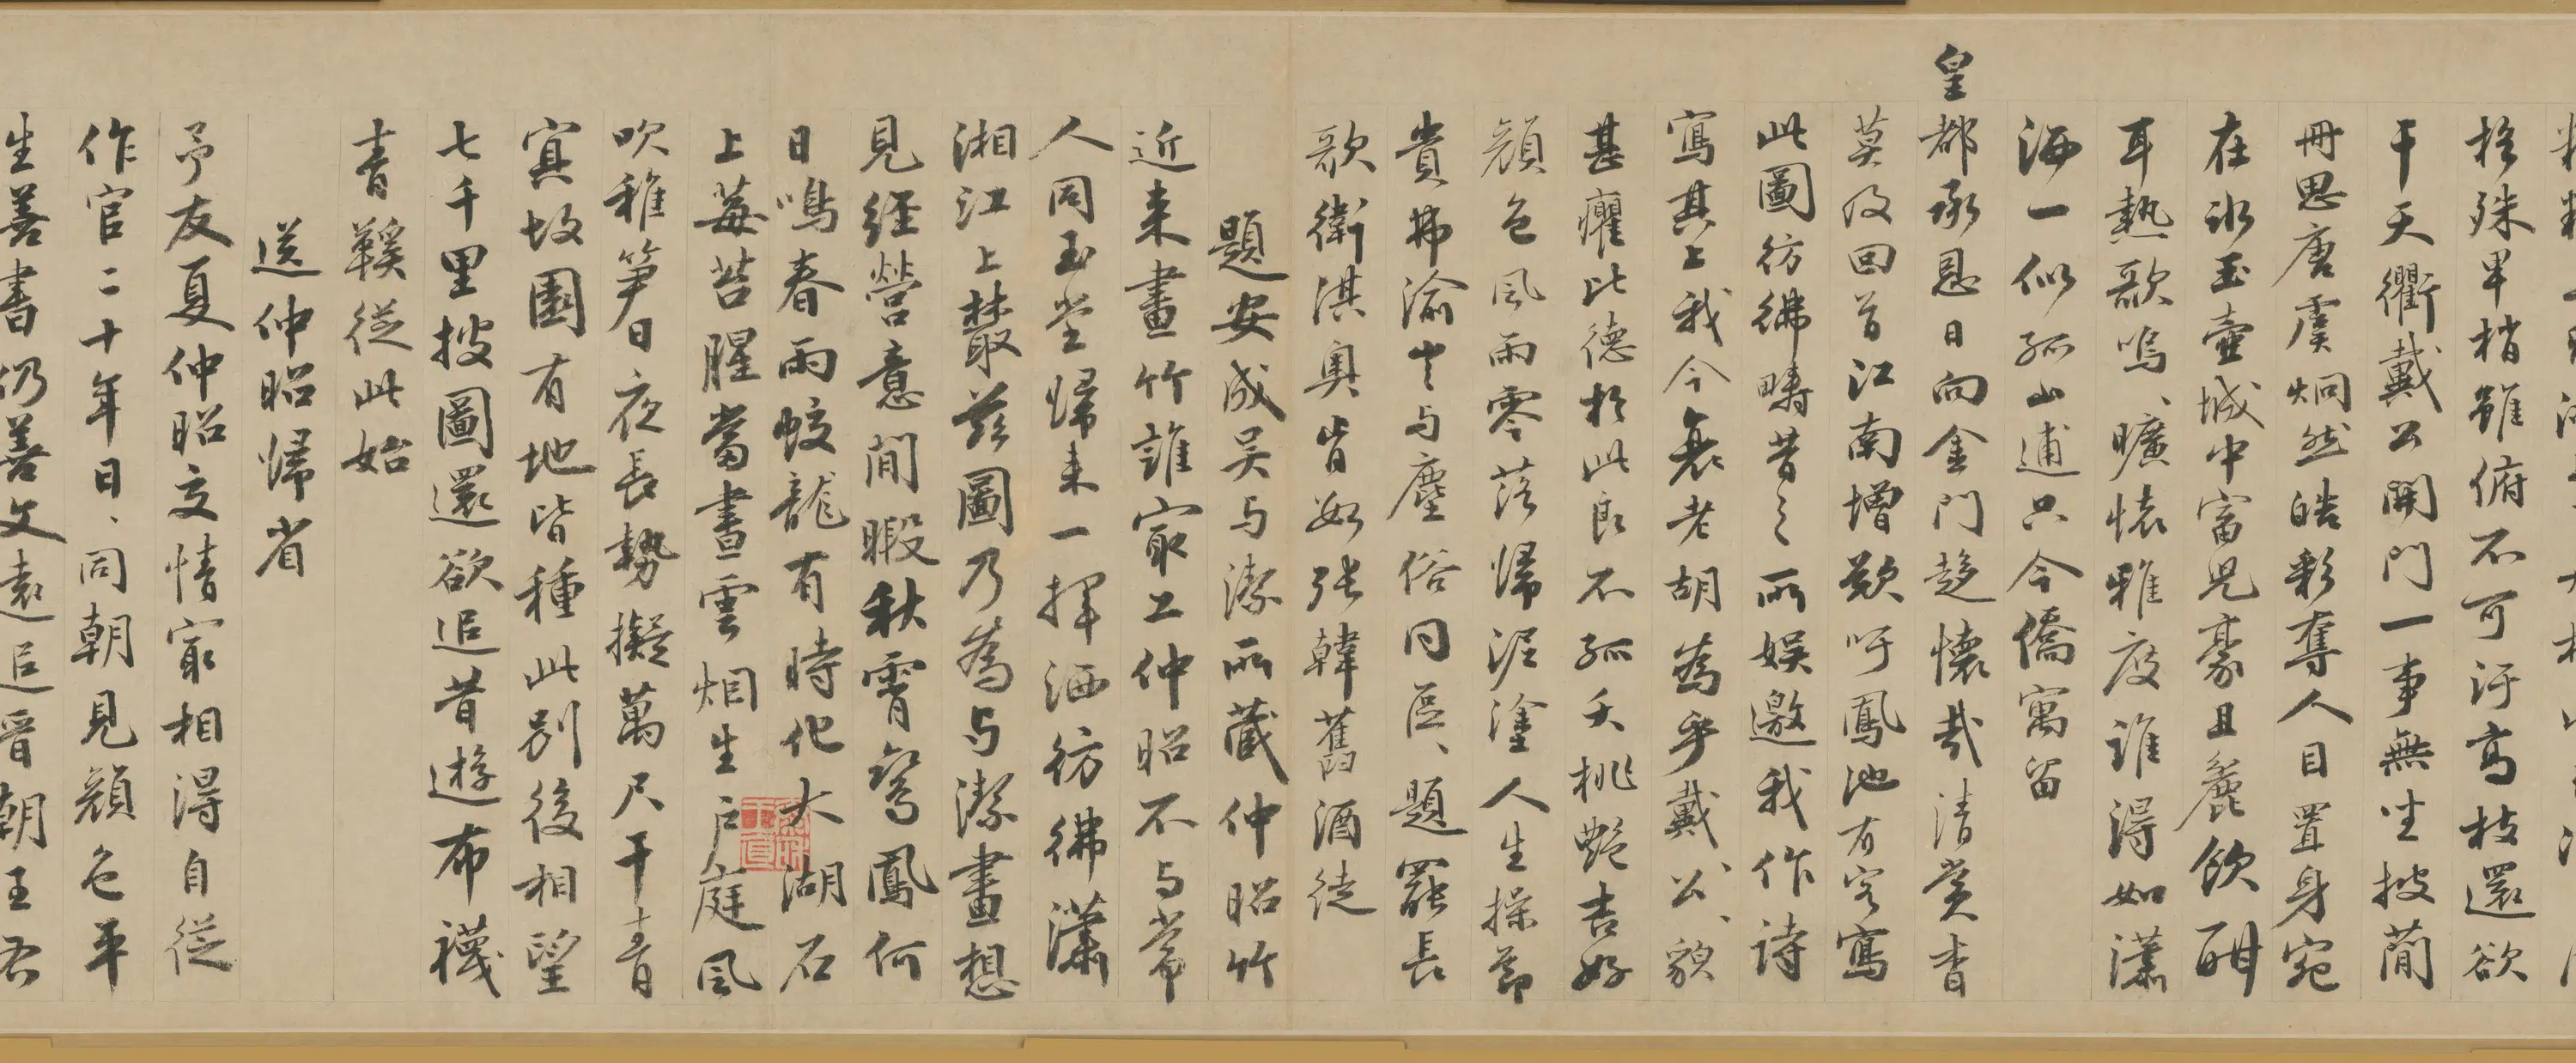 於殊畢梢雖俯不可汙高枝還欲
干天衢戴公開門一事無坐披蕳
冊思唐虞炯然皓彩奪人目置身宛
在冰玉壺城中富兒豪且麗飲酣
耳熱歌嗚、曠懷雅度誰得如瀟
洒一似孤山逋只今僑寓留
皇都承恩日向金門趍懷哉清賞杳
莫及回首江南增歎吁鳳池有客寫
此圖彷彿疇昔之所娛邀我作詩
寫其上我今衰老胡為乎戴公、貌
甚癯比德於此良不孤夭桃艷杏好
顏色風雨零落歸泥塗人生操節
貴弗渝忍与塵俗同區、題罷長
歌衛淇奧皆如張韓舊酒徒
題安成吴与潔所藏仲昭竹
近来畫竹誰㝡工仲昭不与常
人同玉堂歸来一揮洒彷彿瀟
湘江上叢茲圖乃為与潔畫想
見经營意閒暇秋霄鸞鳳何
日鳴春雨蛟龍有時化太湖石
上莓苔腥當晝雲烟生戶庭風
吹稚笋日夜長勢擬萬尺干青
冥故園有地皆種此別後相望
七千里披圖還欲追昔遊布襪
青鞵從此始
送仲昭歸省
予友夏仲昭交情㝡相得自從
作官二十年日、同朝見顏色平
生善書仍善文遠追晉朝王右